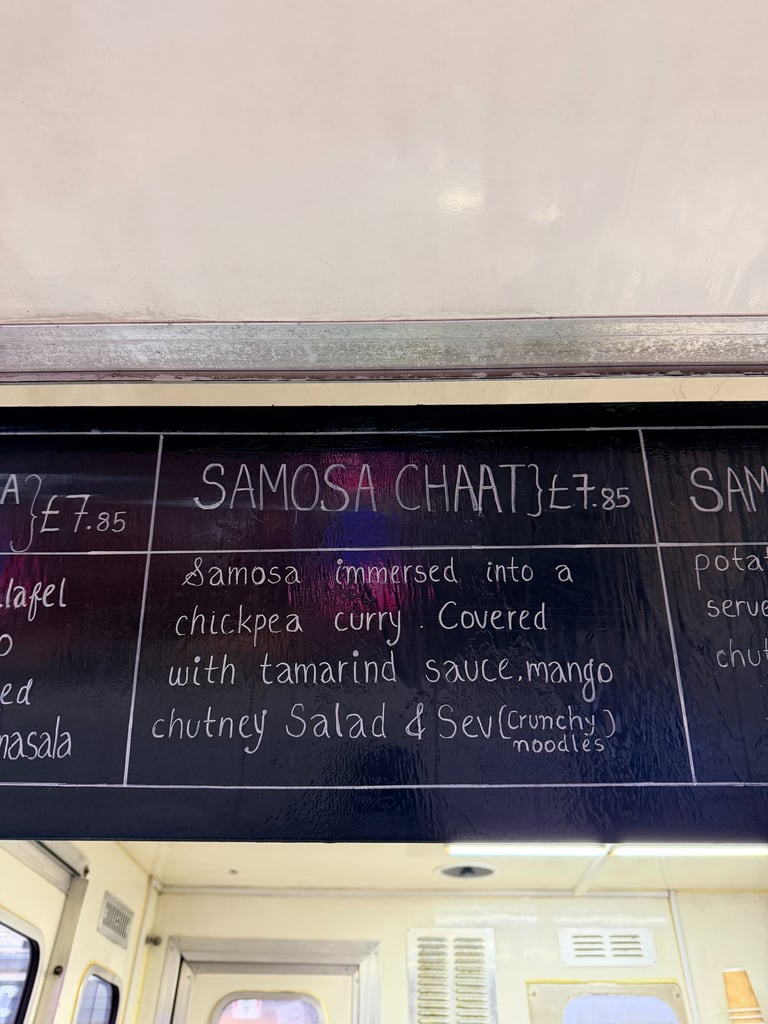 £7.85
SAMOSA CHAAT} £7.85
Samosa immersed into a
chickpea curry. Covered
with tamarind sauce, mango
chutney Salad & Sev (Crunchy)
noodles
ed
masala
serve